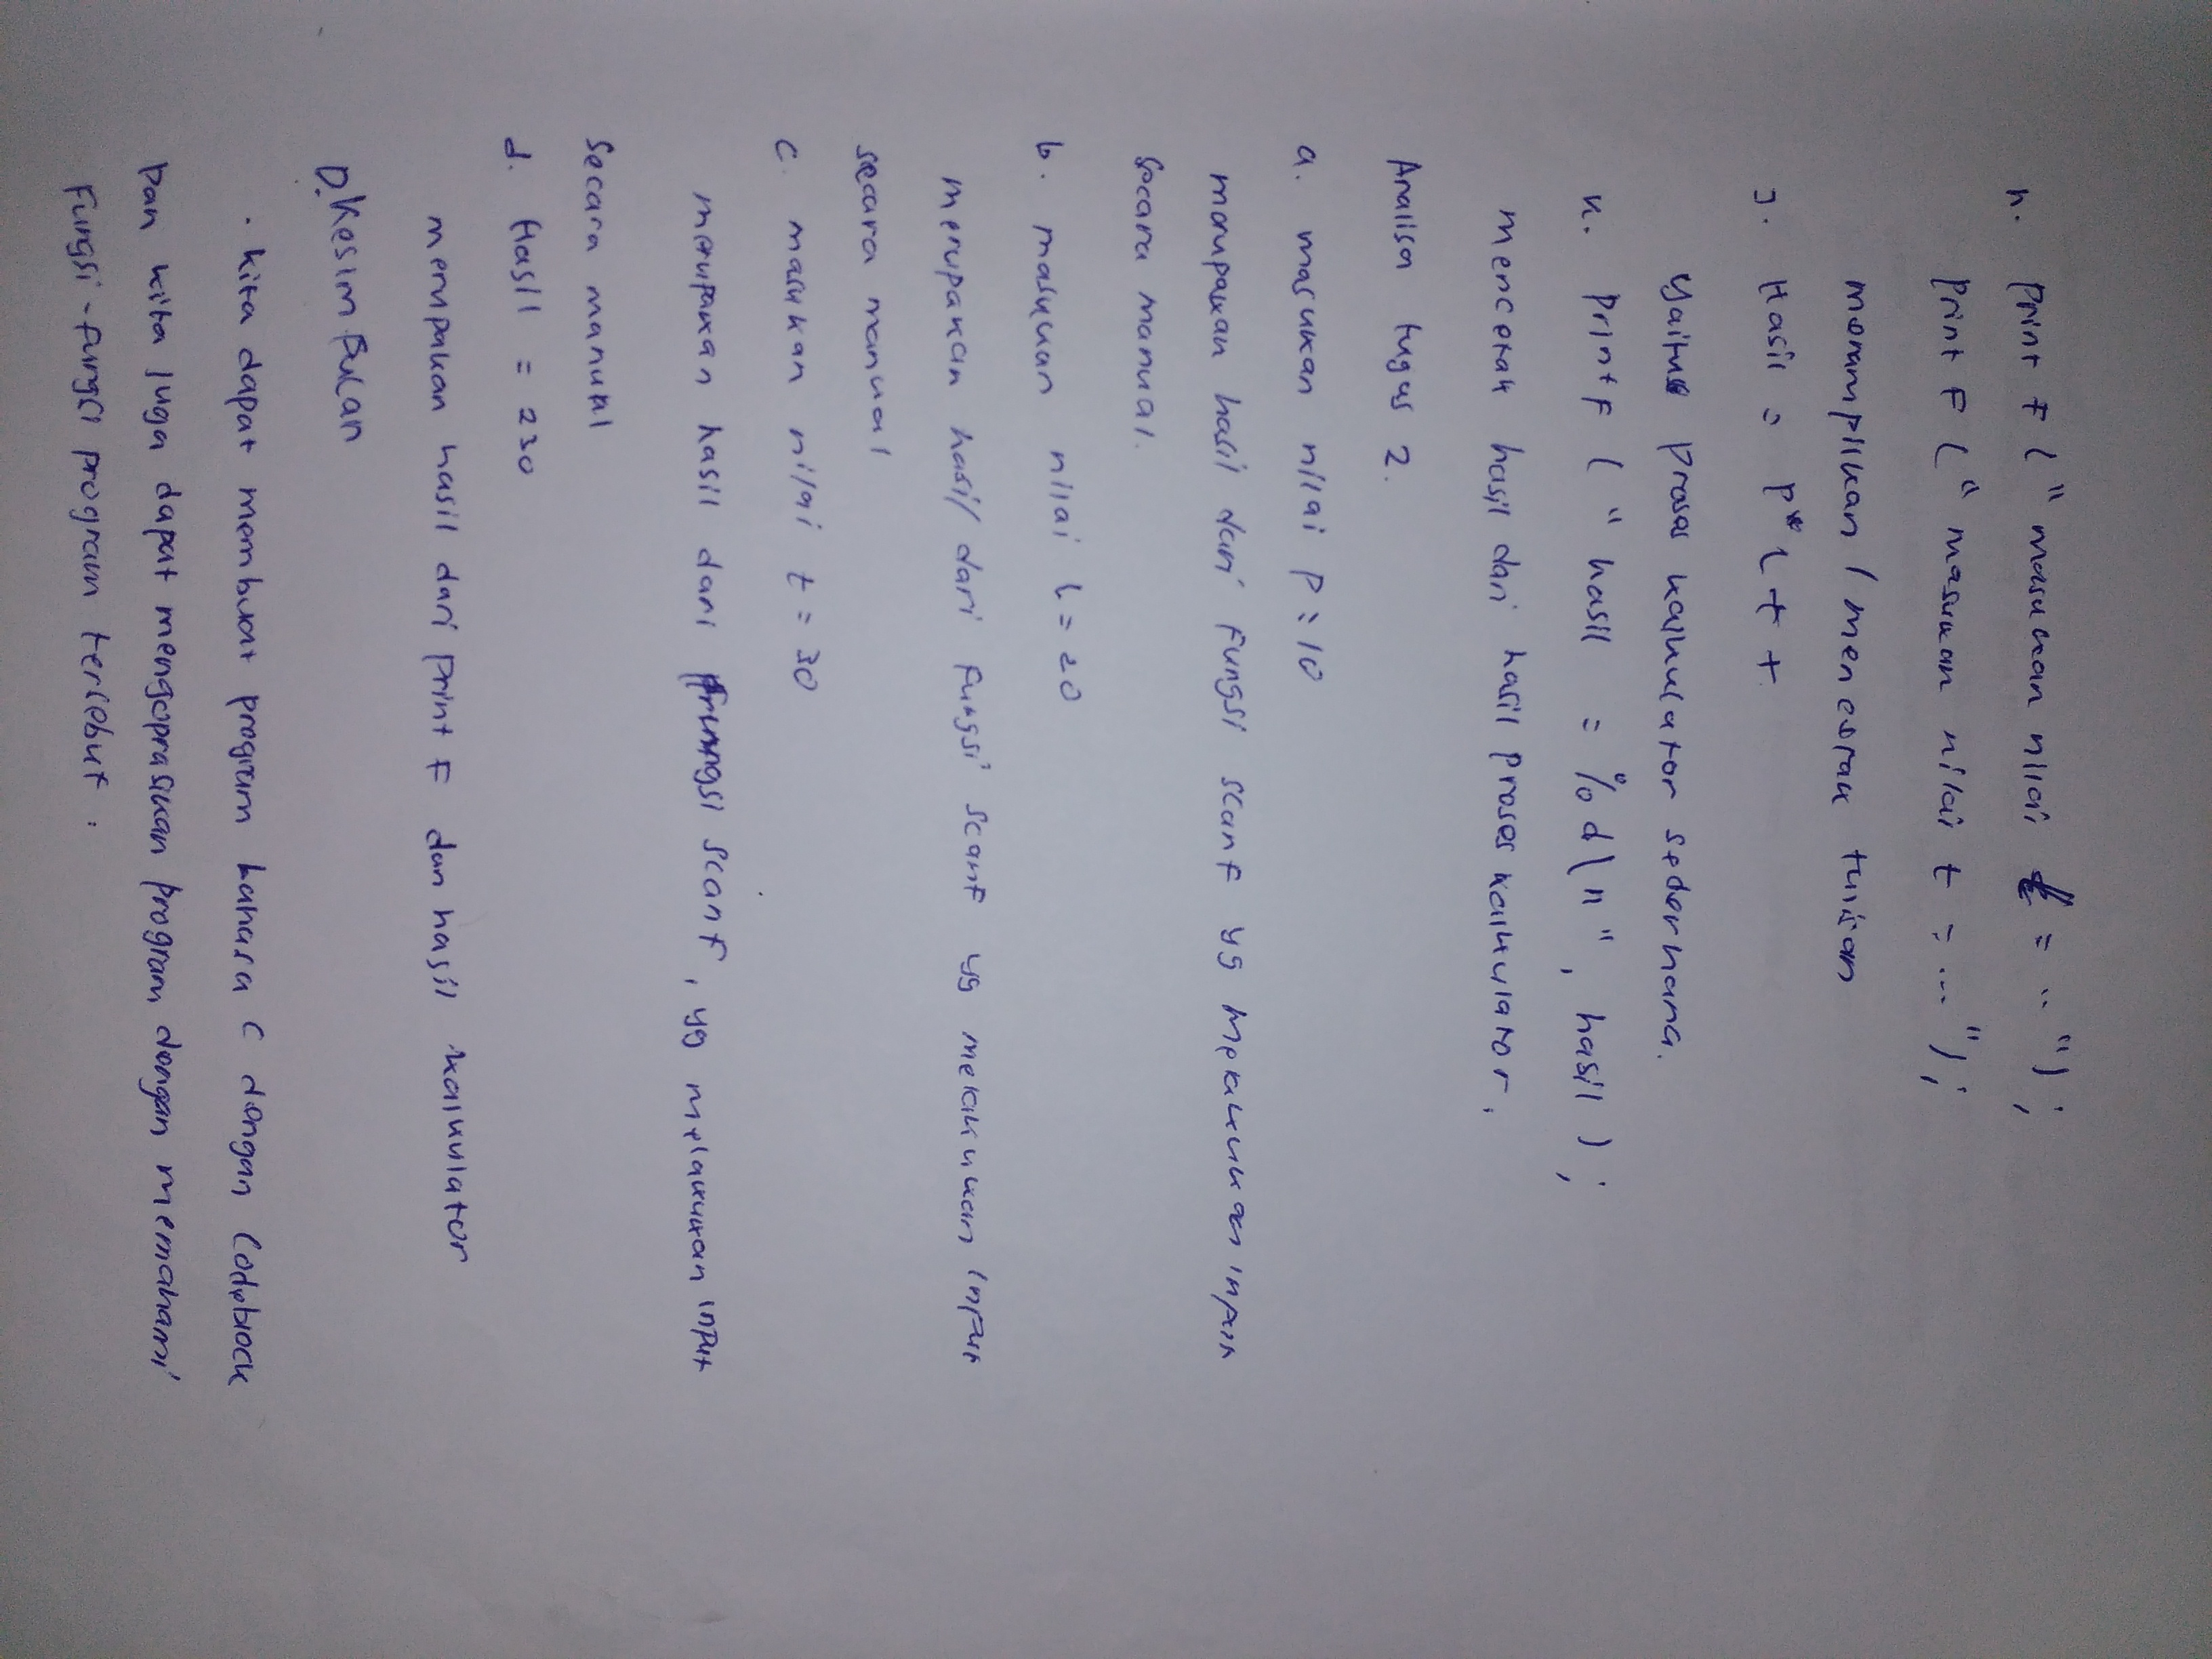 h. Print F ("masukan nilai l = ..");
Print F ("masukan nilai t = ...");
menampilkan / mencetak tulisan
J. Hasil = P*L+t
Yaitu proses kalkulator sederhana.
k. PrintF ("hasil = %d\n", hasil);
mencetak hasil dari hasil proses kalkulator.
Analisa tugas 2.
a. masukan nilai P : 10
merupakan hasil dari fungsi scanf yg melakukan input
secara manual.
b. masukan nilai L = 20
merupakan hasil dari fungsi scanf yg melakukan input
secara manual
c. masukan nilai t = 30
merupakan hasil dari fungsi scanf, yg melakukan input
Secara manual
d. Hasil = 230
merupakan hasil dari print F dan hasil kalkulator
D. Kesimpulan
. kita dapat membuat program bahasa C dengan Codeblock
Dan kita juga dapat mengoprasikan program dengan memahami
Fungsi-fungsi program tersebut.